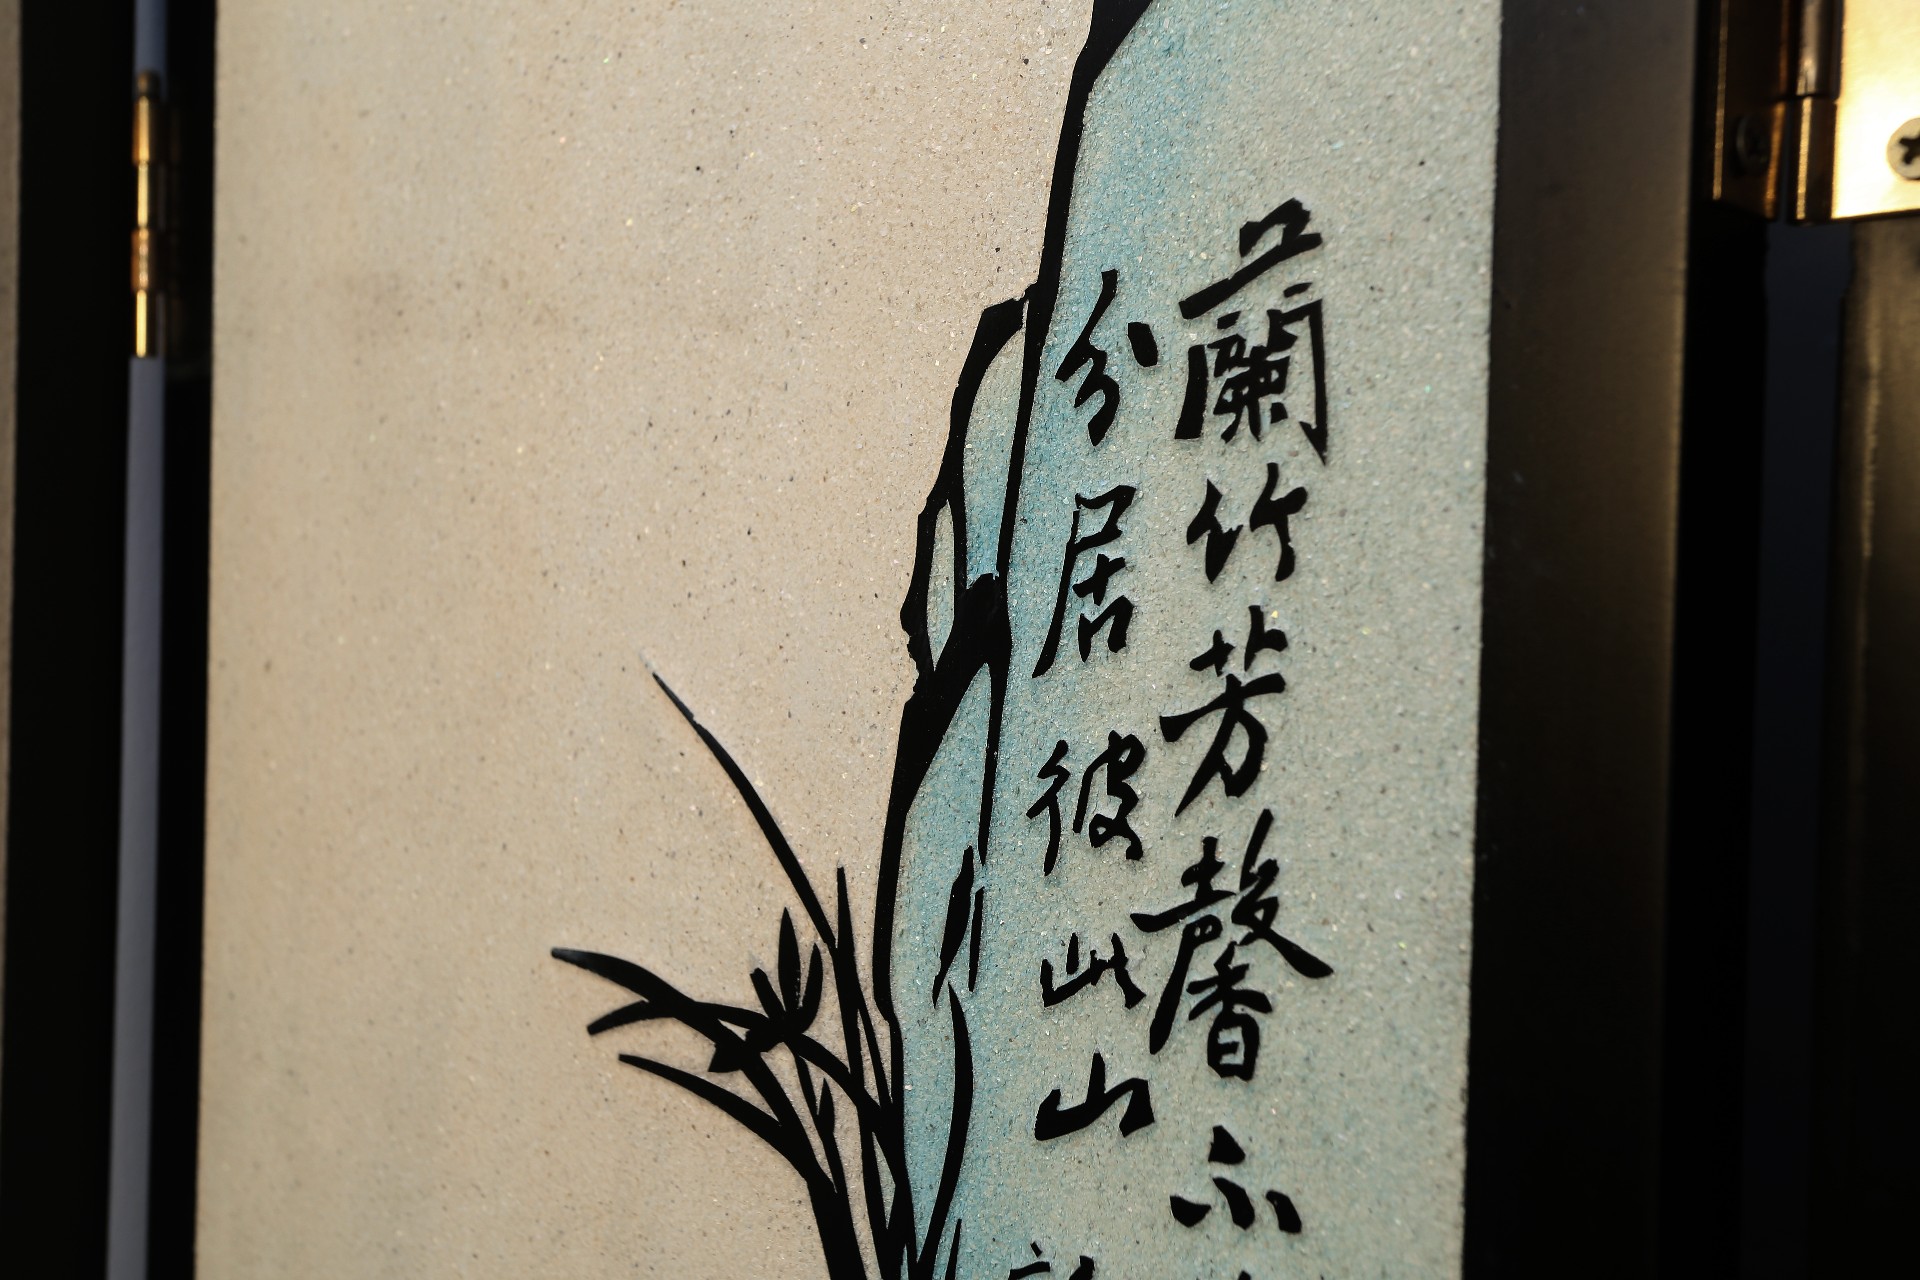 蘭竹芳馨不
分居彼此山